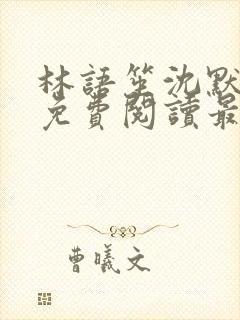 林語笙沈默
免費閱讀最
曹曦文